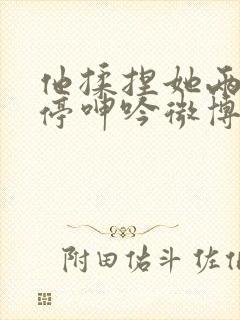 他揉捏她两
停呻吟微博
附田佑斗 佐佐